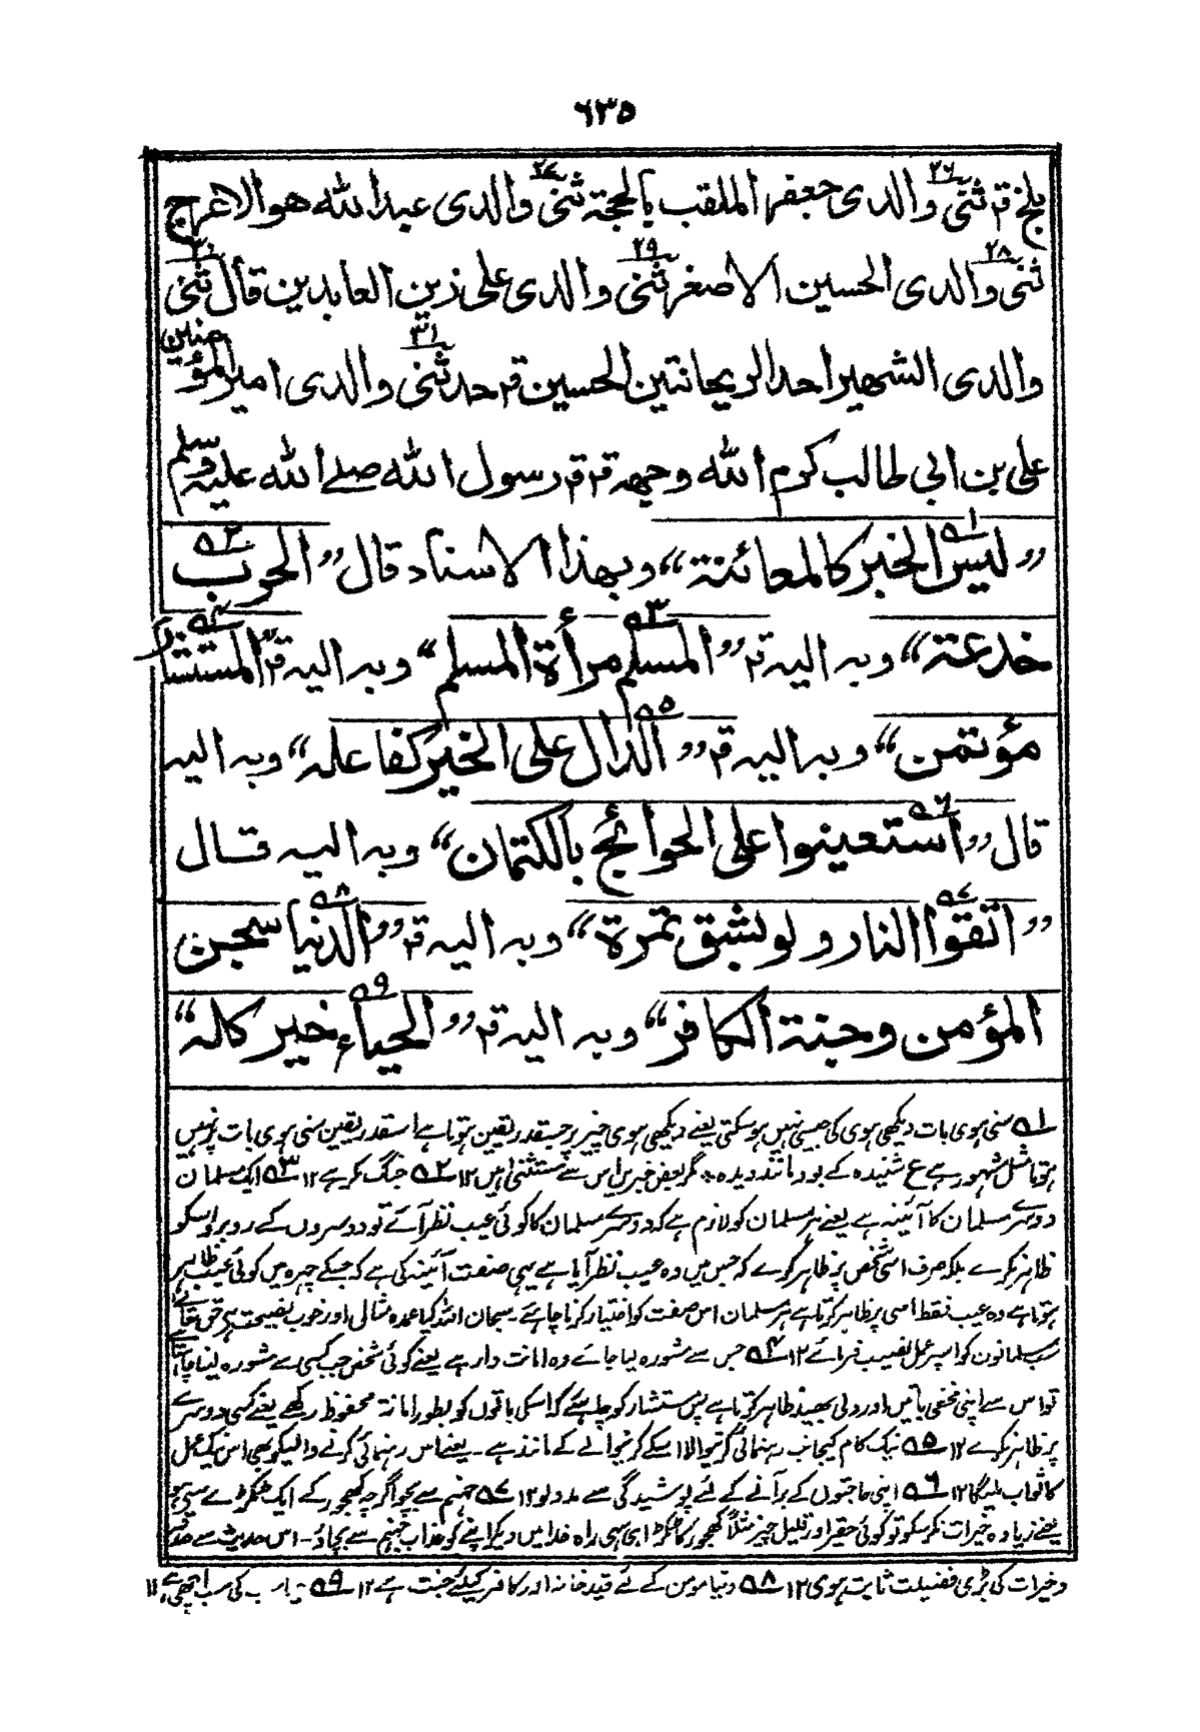 ٦٣٥
بلخ قر ثنی ٢٦ والدی جعفر الملقب بالحجة ثنی ٢٧ والدی عبد الله هو الاعرج
ثنی ٢٨ والدی الحسین الاصغر ثنی ٢٩ والدی علی زین العابدین قال ثنی ٣٠
والدی الشهیر احد الریحانتین الحسین قر حدثنی ٣١ والدی امیر المؤمنین
علی بن ابی طالب کرم الله وجهه قر قر رسول الله صلے الله علیه وسلم
”لیس الخبر کالمعائنة“ ۵١ وبهذا الاسناد قال ”الحرب ۵٢
خدعة“ وبه الیه قر ”المسلم ۵٣ مرأة المسلم“ وبه الیه قر ”المستشار ۵۴
مؤتمن“ وبه الیه قر ”الدال ۵۵ علی الخیر کفاعله“ وبه الیه
قال ”استعینوا ۵٦ علی الحوائج بالکتمان“ وبه الیه قال
”اتقوا ۵٧ النار ولو بشق تمرة“ وبه الیه قر ”الدنیا ۵٨ سجن
المؤمن وجنة الکافر“ وبه الیه قر ”الحیاء ۵٩ خیر کله“
۵١ سنی ہوی بات دیکھی ہوی کی جیسی نہیں ہوسکتی یعنے دیکھی ہوی چیز پر جسقدر یقین ہوتا ہے اسقدر یقین سنی ہوی بات پر نہیں
ہوتا مثل شہور ہے ع شنیدہ کے بود مانند دیدہ ٭ مگر بعض خبریں اس سے مستثنیٰ ہیں ١٢ ۵٢ جنگ مکر ہے ١٢ ۵٣ ایک مسلمان
دوسرے مسلمان کا آئینہ ہے یعنے ہر مسلمان کو لازم ہے کہ دوسرے مسلمان کا کوئی عیب نظر آئے تو دوسروں کے روبرو اسکو
ظاہر نکرے بلکہ صرف اسی شخص پر ظاہر کرے کہ جس میں وہ عیب نظر آیا ہے یہی صنعت آئینہ کی ہے کہ جسکے چہرہ میں کوئی عیب ظاہر
ہوتا ہے وہ عیب فقط اسی پر ظاہر کرتا ہے ہر مسلمان اس صفت کو اختیار کرنا چاہئے ۔ سبحان اللہ کیا عمدہ مثالی اور خوب نصیحت ہے حق تعالے
سب مسلمانون کو اسپر عمل نصیب فرمائے ١٢ ۵۴ جس سے مشورہ لیا جائے وہ امانت دار ہے یعنے کوئی شخص جب کسی سے مشورہ لینا چاہتا ہے
تو اس سے اپنی مخفی باتیں اور دلی بھید ظاہر کرتا ہے پس مستشار کو چاہئے کہ اسکی باتوں کو بطور امانة محفوظ رکھے یعنے کسی دوسرے
پر ظاہر نکرے ١٢ ۵۵ نیک کام کیجانب رہنمائی کرنیوالا اسکے کرنیوالے کے مانند ہے ۔ یعنے اس رہنمائی کرنے والیکو بھی اس نیک عمل
کا ثواب ملیگا ١٢ ۵٦ اپنی حاجتوں کے برآنے کے لئے پوشیدگی سے مدد لو ١٢ ۵٧ جہنم سے بچو اگرچہ کھجور کے ایک ٹکڑے سے ہی ہو
یعنے زیادہ خیرات نکرسکو تو کوئی حقیر اور قلیل چیز مثلاً کھجور کا ٹکڑا ہی سہی راہ خدا میں دیکر اپنے کو عذاب جہنم سے بچاؤ ۔ اس حدیث سے صدقہ
و خیرات کی بڑی فضیلت ثابت ہوی ١٢ ۵٨ دنیا مومن کے لئے قید خانہ اور کافر کیلئے جنت ہے ١٢ ۵٩ حیا سب کی سب اچھی ہے ١٢